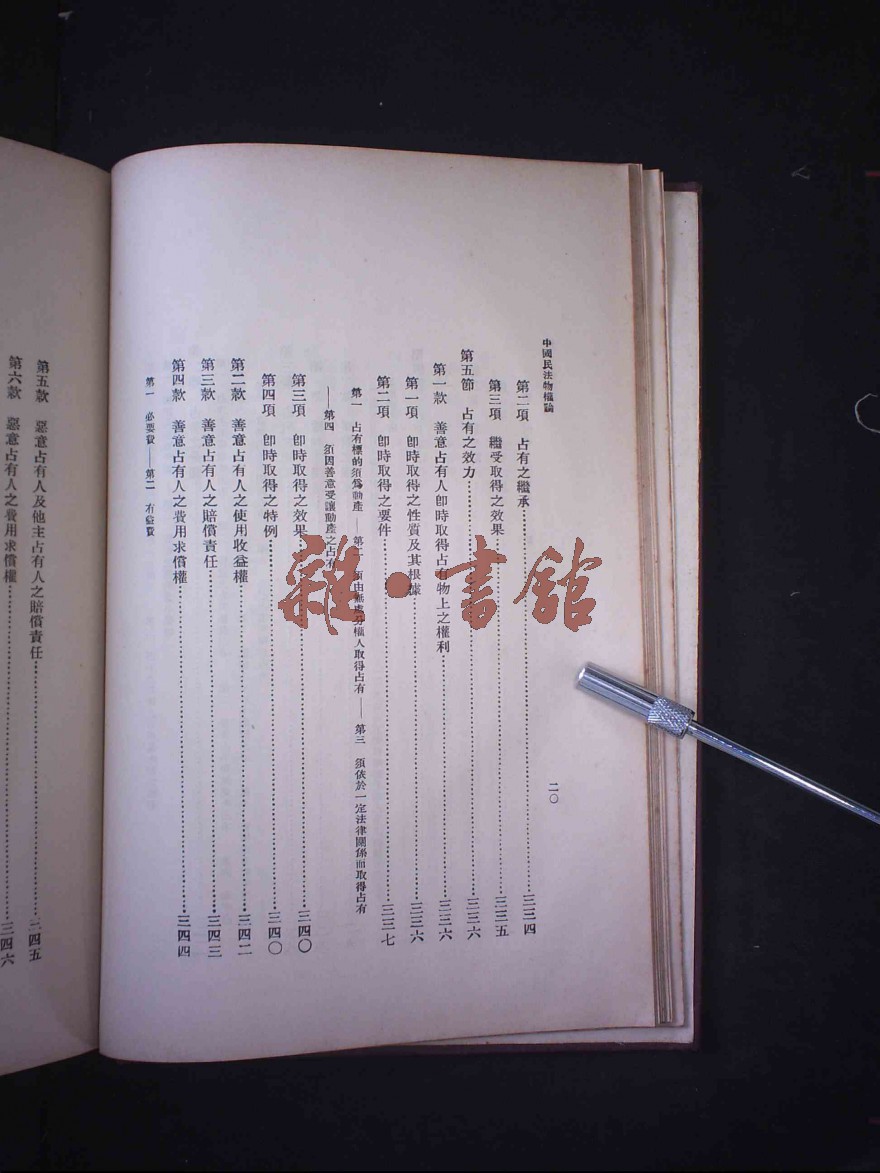 中國民法物權論
二〇
第二項 占有之繼承……三三四
第三項 繼受取得之效果……三三五
第五節 占有之效力……三三六
第一款 善意占有人卽時取得占有物上之權利……三三六
第一項 卽時取得之性質及其根據……三三六
第二項 卽時取得之要件……三三七
第一 占有標的須爲動產——第二 須由無處分權人取得占有——第三 須依於一定法律關係而取得占有
——第四 須因善意受讓動產之占有
第三項 卽時取得之效果……三四〇
第四項 卽時取得之特例……三四〇
第二款 善意占有人之使用收益權……三四二
第三款 善意占有人之賠償責任……三四三
第四款 善意占有人之費用求償權……三四四
第一 必要費——第二 有益費
第五款 惡意占有人及他主占有人之賠償責任……三四五
第六款 惡意占有人之費用求償權……三四六
雜·書館